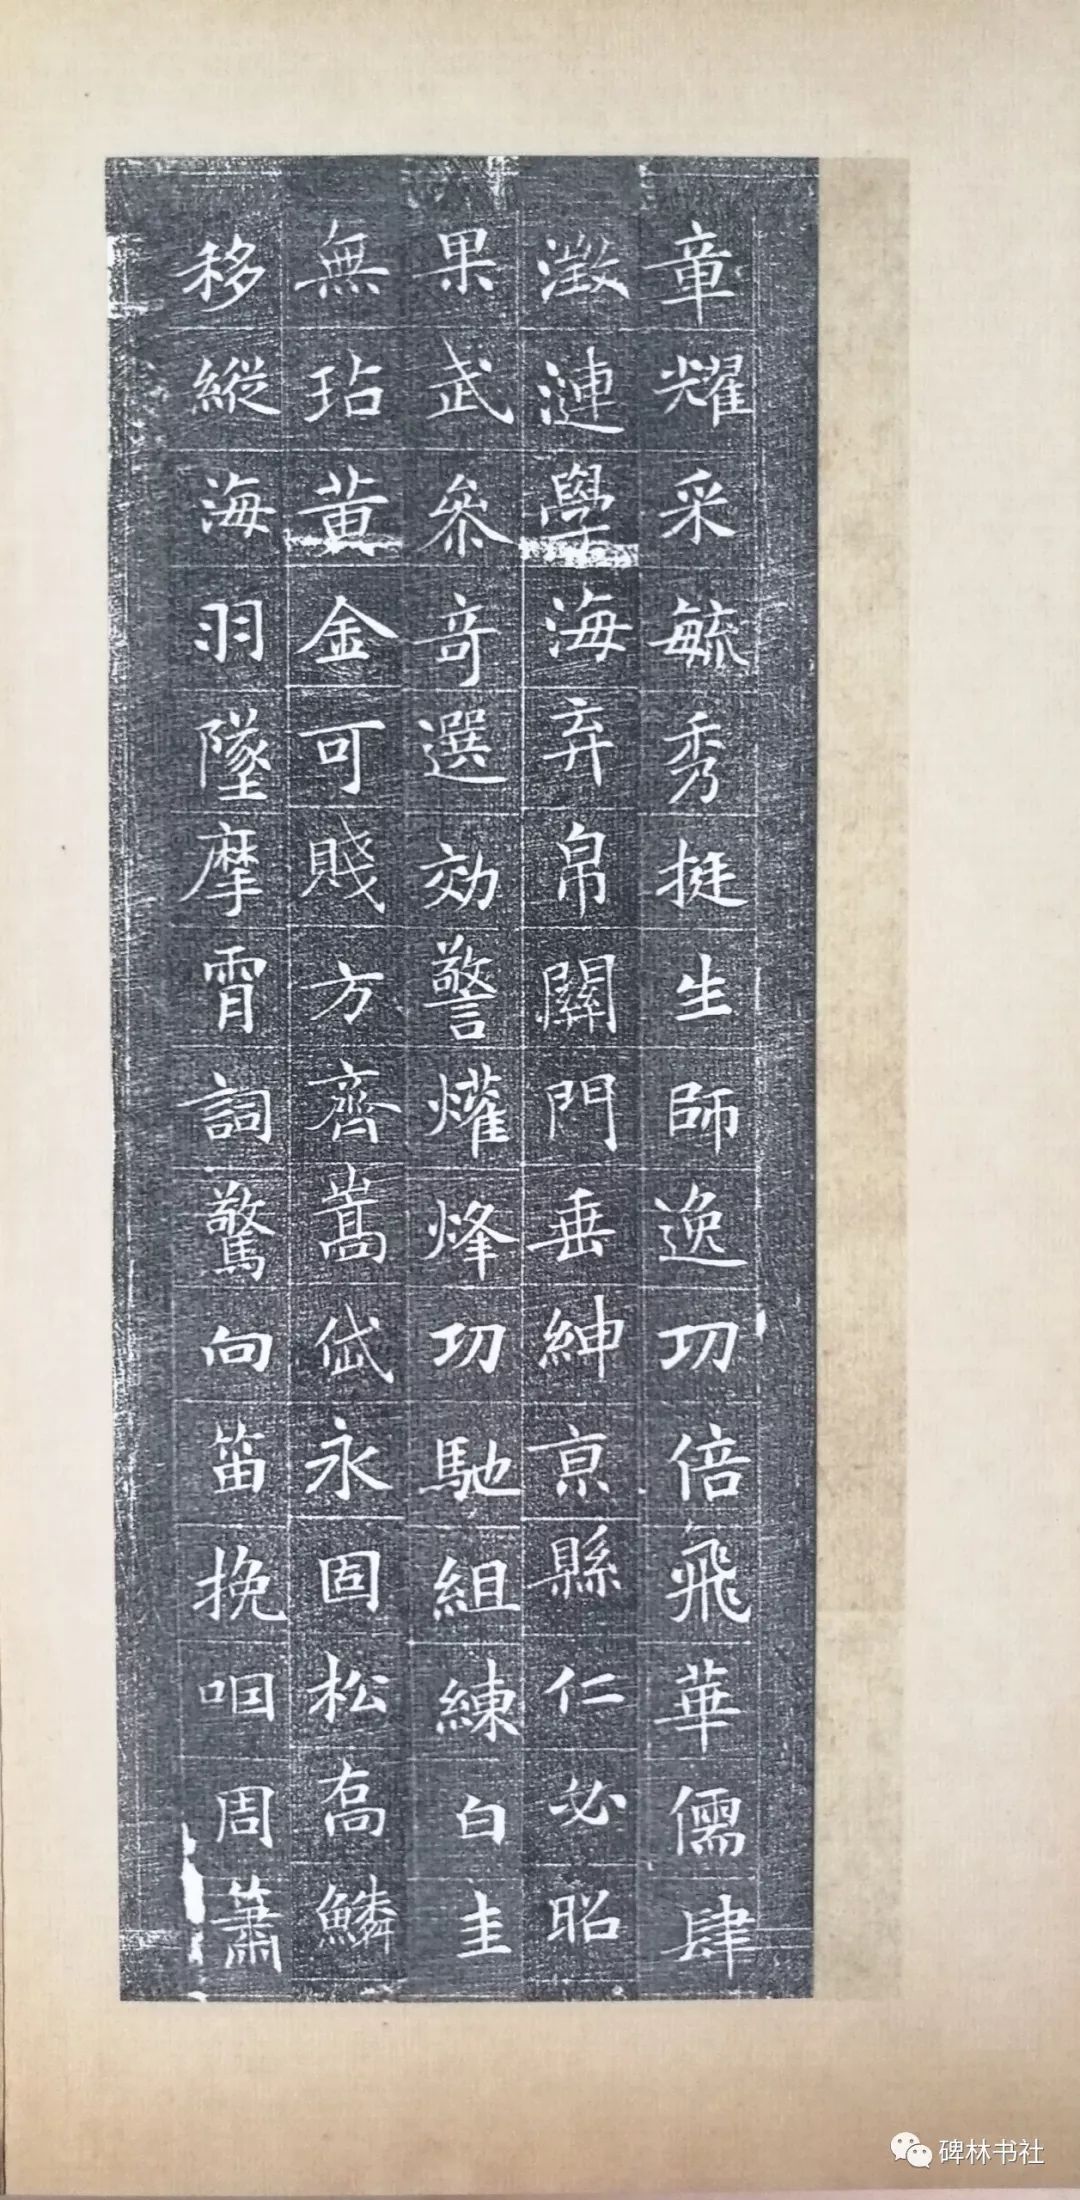 章耀采毓秀挺生師逸功倍飛華儒肆
澂漣學海弃帛關門垂紳亰縣仁必昭
果武叅竒選効警爟烽功馳組練白圭
無玷黄金可賤方齊嵩岱永固松喬鱗
移縱海羽墜摩霄詞驚向笛挽咽周簫
碑林书社